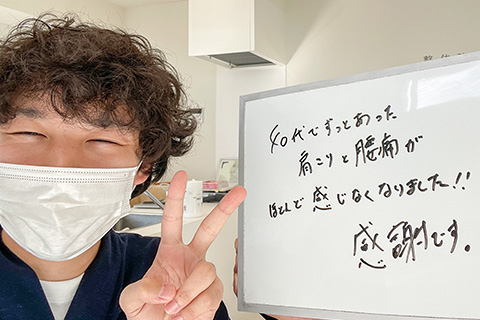 40代でずっとあった
肩こりと腰痛が
ほとんど感じなくなりました!!
感謝です。